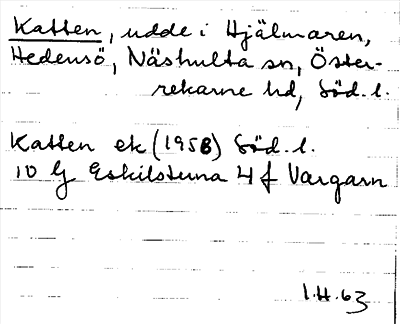 Katten, udde i Hjälmaren,
Hedensö, Näshulta sn, Öster-
rekarne hd, Söd. l.
Katten ek (1958) Söd. l.
10 G Eskilstuna 4 f Vargarn
I.H. 63